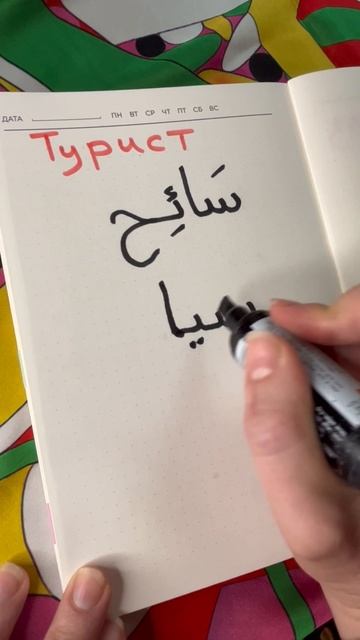 ДАТА ПН ВТ СР ЧТ ПТ СБ ВС
Турист
سَائِح